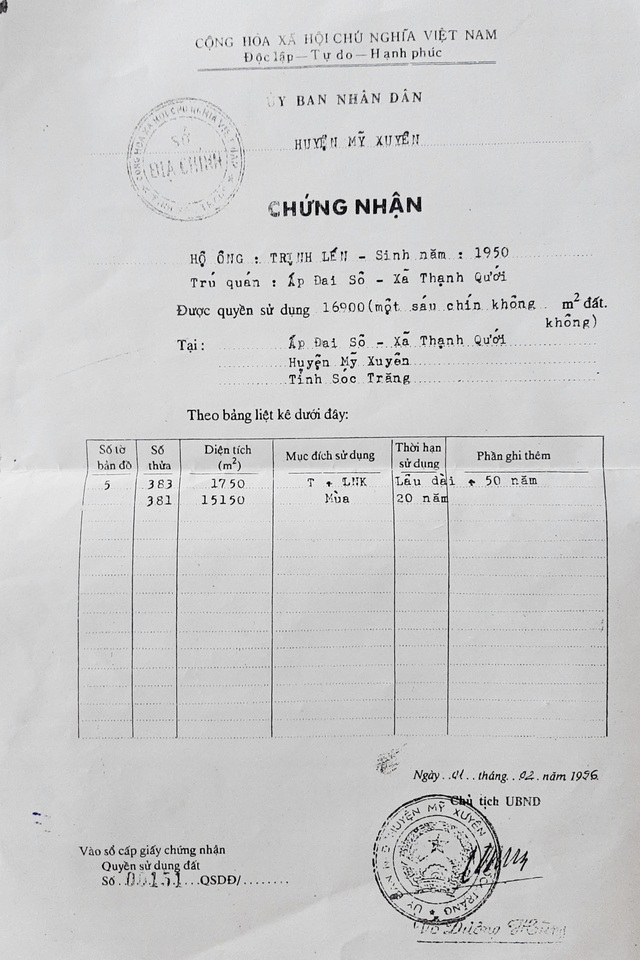 CỘNG HÒA XÃ HỘI CHỦ NGHĨA VIỆT NAM
Độc lập — Tự do — Hạnh phúc
ỦY BAN NHÂN DÂN
HUYỆN MỸ XUYÊN
SỞ
ĐỊA CHÍNH
CHỨNG NHẬN
HỘ ÔNG : TRỊNH LẾN - Sinh năm : 1950
Trú quán : Ấp Đai Sô - Xã Thạnh Qưới
Được quyền sử dụng 16900(một sáu chín không m² đất.
không)
Tại : Ấp Đai Sô - Xã Thạnh Qưới
Huyện Mỹ Xuyên
Tỉnh Sóc Trăng
Theo bảng liệt kê dưới đây:
Số tờ bản đồ Số thửa Diện tích (m²) Mục đích sử dụng Thời hạn sử dụng Phần ghi thêm
5 383 1750 T + LNK Lâu dài + 50 năm
381 15150 Mùa 20 năm
Ngày..01..tháng..02.năm 1996.
Chủ tịch UBND
ỦY BAN N.D HUYỆN MỸ XUYÊN SÓC TRĂNG
Vào sổ cấp giấy chứng nhận
Quyền sử dụng đất
Số.00151...QSDĐ/........